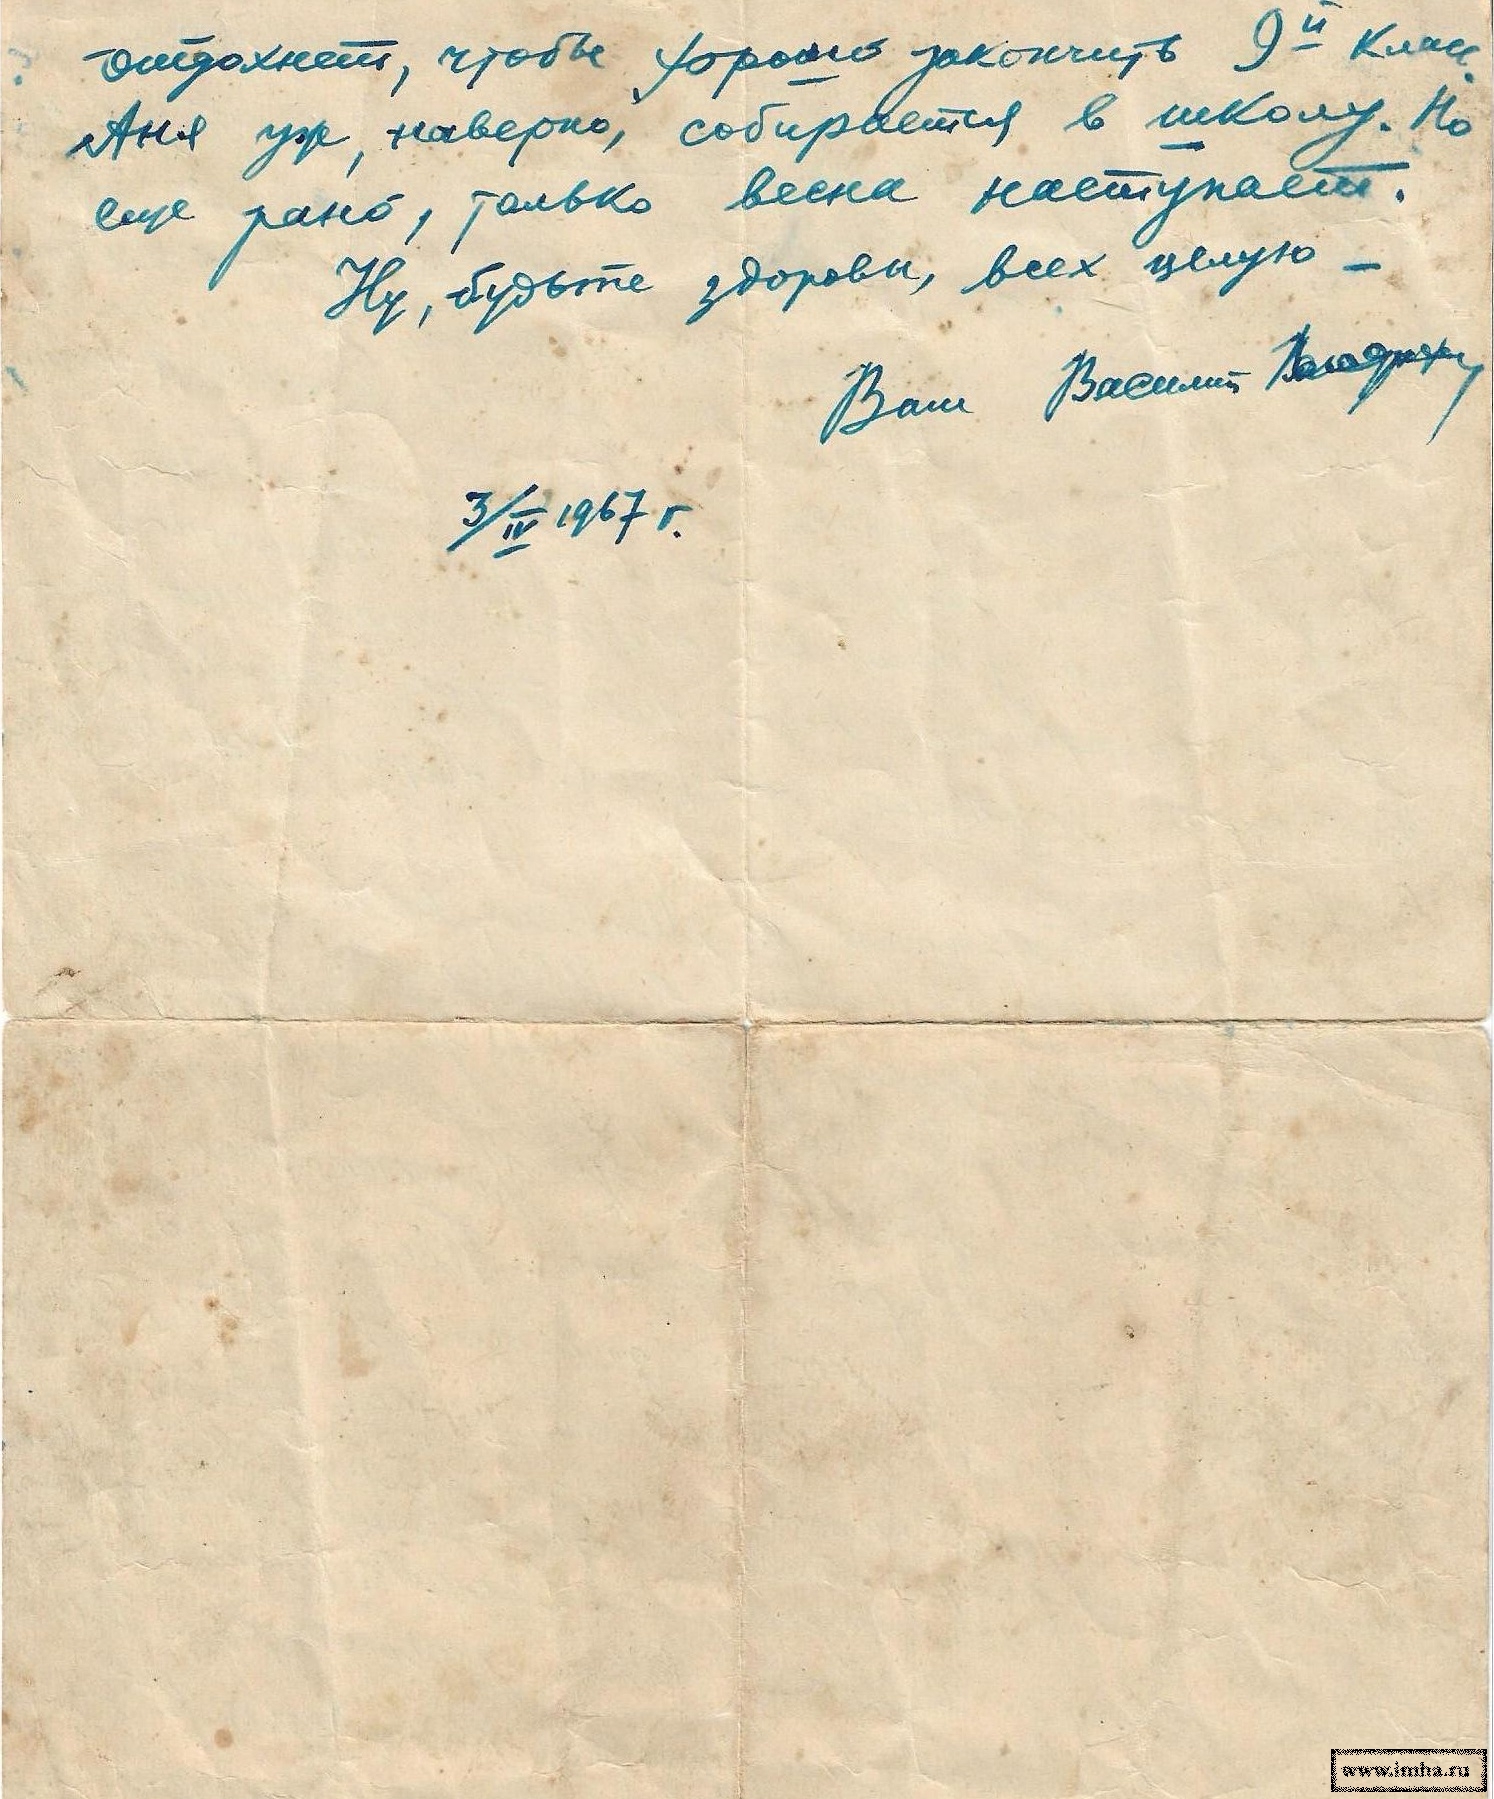 отдохнет, чтобы хорошо закончить 9й класс.
Аня уж, наверно, собирается в школу. Но
еще рано, только весна наступает.
Ну, будьте здоровы, всех целую –
Ваш Василий
3/IV 1967 г.
www.imha.ru